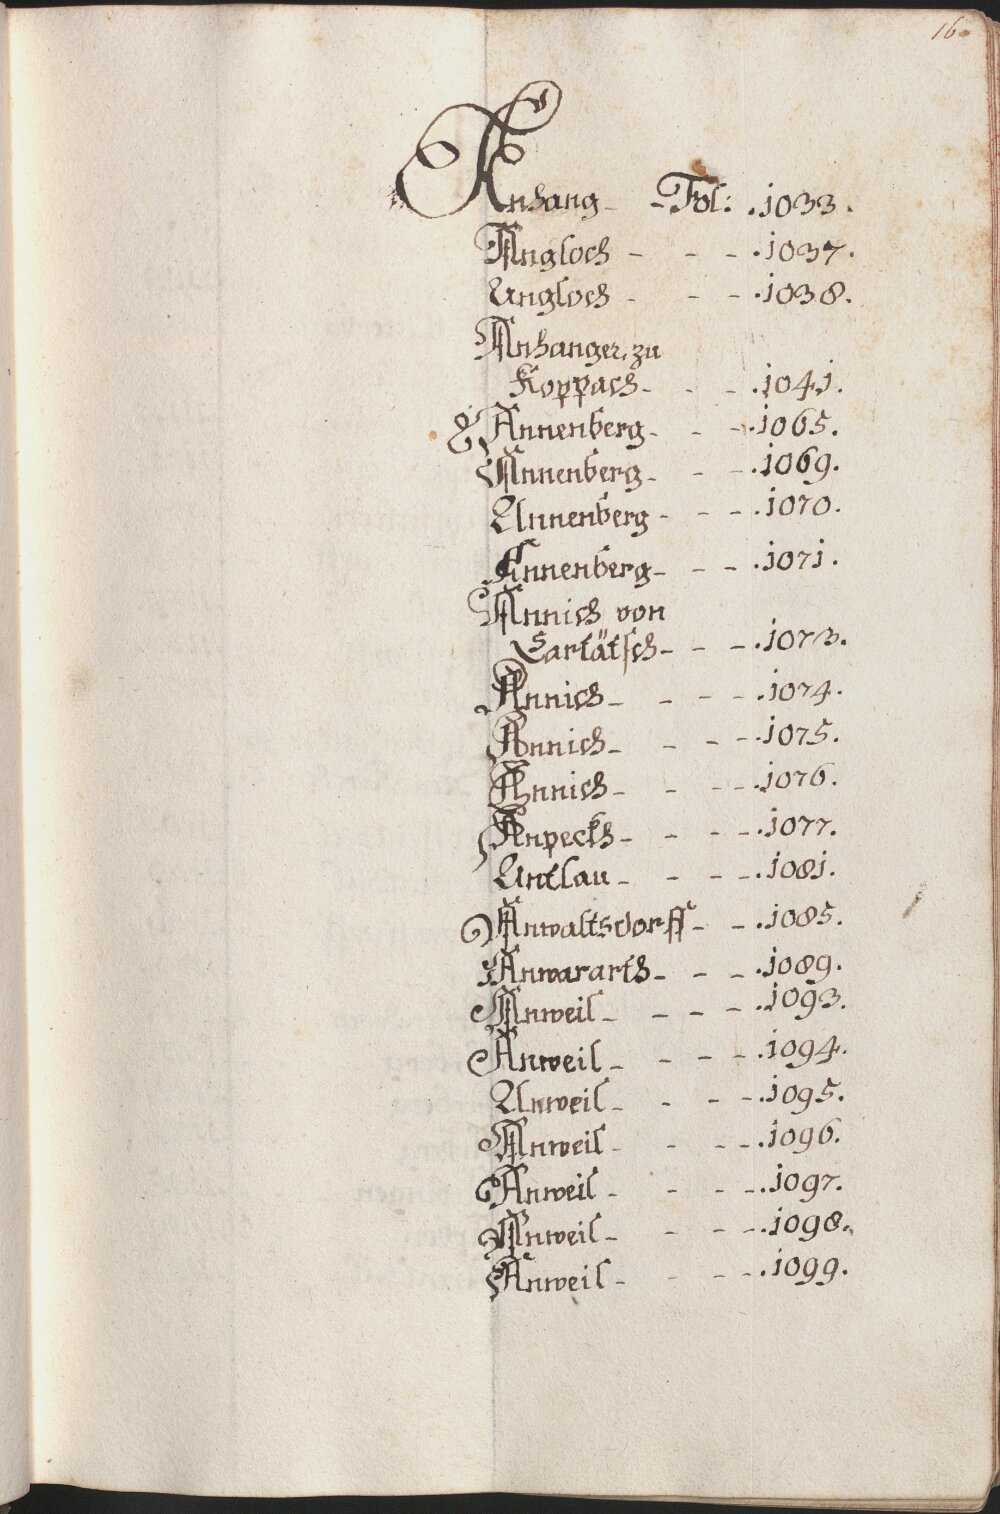 16
Anhang - - Fol: . 1033.
Angloch - - - . 1037.
Angloch - - - . 1038.
Anhanger, zu
Koppach - - - . 1041.
Annenberg - - - . 1065.
Annenberg - - - . 1069.
Annenberg - - - . 1070.
Annenberg - - - . 1071.
Annich von
Cartätsch - - - . 1073.
Annich - - - - . 1074.
Annich - - - - . 1075.
Annich - - - - . 1076.
Anpeckh - - - - . 1077.
Antlau - - - - . 1081.
Anwaltsdorff - - . 1085.
Anwararth - - - . 1089.
Anweil - - - - . 1093.
Anweil - - - - . 1094.
Anweil - - - - . 1095.
Anweil - - - - . 1096.
Anweil - - - - . 1097.
Anweil - - - - . 1098.
Anweil - - - - . 1099.